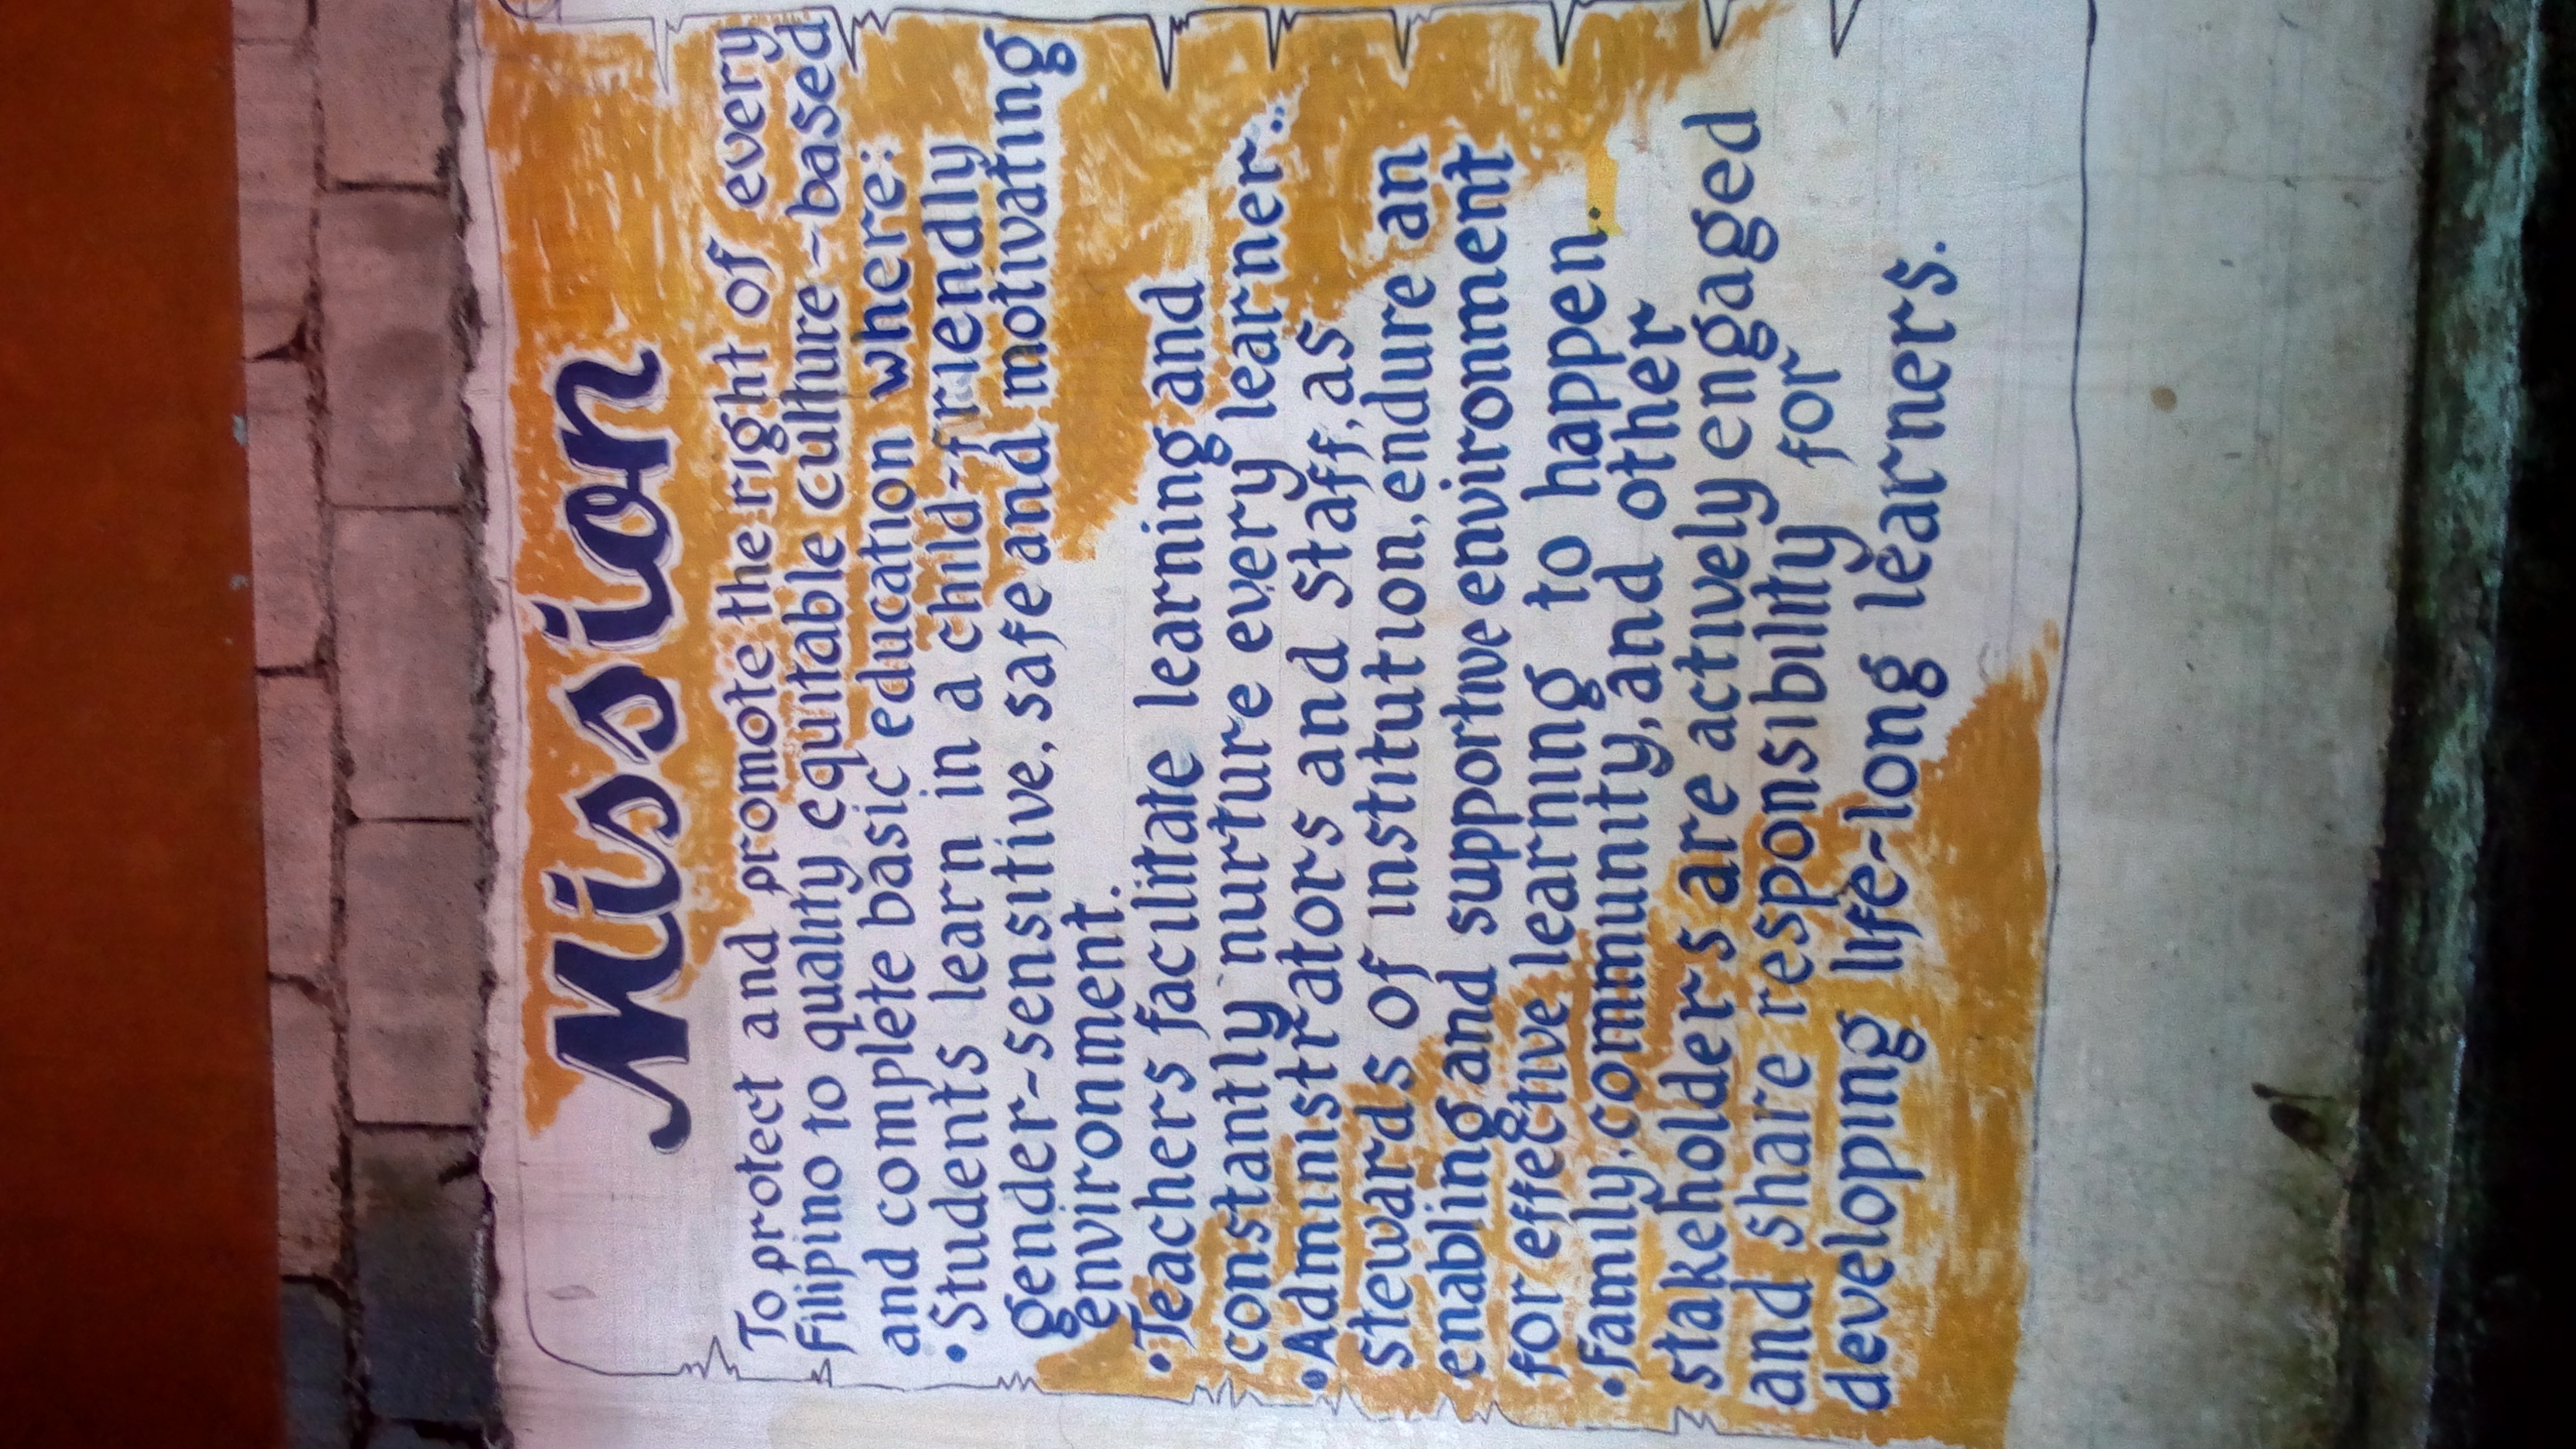 Mission
To protect and promote the right of every
Filipino to quality equitable culture-based
and complete basic education where:
• Students learn in a child-friendly
gender-sensitive, safe and motivating
environment.
• Teachers facilitate learning and
constantly nurture every learner...
• Administrators and Staff, as
stewards of institution, endure an
enabling and supportive environment
for effective learning to happen.
• Family, community, and other
stakeholders are actively engaged
and share responsibility for
developing life-long learners.